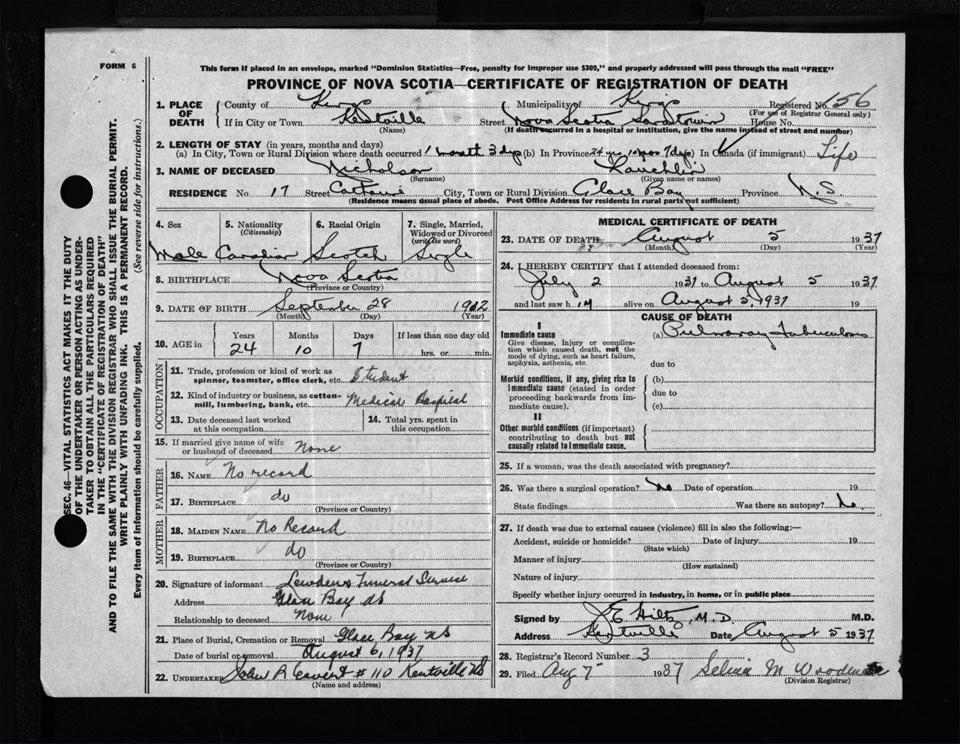 FORM 6
This form if placed in an envelope, marked "Dominion Statistics—Free, penalty for improper use $300," and properly addressed will pass through the mail "FREE"
PROVINCE OF NOVA SCOTIA—CERTIFICATE OF REGISTRATION OF DEATH
1. PLACE OF DEATH { County of Kings Municipality of Kings Registered No. 156
(For use of Registrar General only)
If in City or Town Kentville Street Nova Scotia House No.
(Name) (If death occurred in a hospital or institution, give the name instead of street and number)
2. LENGTH OF STAY (in years, months and days)
(a) In City, Town or Rural Division where death occurred 1 month 3 dys (b) In Province 24 yrs 10 mos 7 dys (c) In Canada (if immigrant) Life
3. NAME OF DECEASED Nicholson Lauchlin
(Surname) (Given name or names)
RESIDENCE No. 17 Street City, Town or Rural Division Glace Bay Province N.S.
(Residence means usual place of abode. Post Office Address for residents in rural parts not sufficient)
4. Sex
Male
5. Nationality
(Citizenship)
Canadian
6. Racial Origin
Scotch
7. Single, Married, Widowed or Divorced
(write the word)
Single
8. BIRTHPLACE Nova Scotia
(Province or Country)
9. DATE OF BIRTH September 28 1912
(Month) (Day) (Year)
10. AGE Years Months Days If less than one day old
24 10 7 hrs. or min.
OCCUPATION
11. Trade, profession or kind of work as spinner, teamster, office clerk, etc. Student
12. Kind of industry or business, as cotton-mill, lumbering, bank, etc. Medical Hospital
13. Date deceased last worked at this occupation
14. Total yrs. spent in this occupation
15. If married give name of wife or husband of deceased None
FATHER
16. NAME No record
17. BIRTHPLACE do
(Province or Country)
MOTHER
18. MAIDEN NAME No Record
19. BIRTHPLACE do
(Province or Country)
20. Signature of informant Funeral Service
Address Glace Bay NS
Relationship to deceased None
21. Place of Burial, Cremation or Removal Glace Bay NS
Date of burial or removal August 6, 1937
22. UNDERTAKER John R # 110 Kentville NS
(Name and address)
MEDICAL CERTIFICATE OF DEATH
23. DATE OF DEATH August 5 1937
(Month) (Day) (Year)
24. I HEREBY CERTIFY that I attended deceased from:
July 2 1937 to August 5 1937
and last saw him alive on August 5, 1937 19
CAUSE OF DEATH
I
Immediate cause (a) Pulmonary Tuberculosis
Give disease, injury or complication which caused death, not the mode of dying, such as heart failure, asphyxia, asthenia, etc.
due to
Morbid conditions, if any, giving rise to immediate cause (stated in order proceeding backwards from immediate cause).
(b)
due to
(c)
II
Other morbid conditions (if important) contributing to death but not causally related to immediate cause.
25. If a woman, was the death associated with pregnancy?
26. Was there a surgical operation? No Date of operation 19
State findings Was there an autopsy? No.
27. If death was due to external causes (violence) fill in also the following:—
Accident, suicide or homicide? Date of injury 19
(State which)
Manner of injury
(How sustained)
Nature of injury
Specify whether injury occurred in industry, in home, or in public place
Signed by J E Hiltz, M.D. M.D.
Address Kentville Date August 5 1937
28. Registrar's Record Number 3
29. Filed Aug 7" 1937 M
(Division Registrar)
SEC. 46—VITAL STATISTICS ACT MAKES IT THE DUTY
OF THE UNDERTAKER OR PERSON ACTING AS UNDER-
TAKER TO OBTAIN ALL THE PARTICULARS REQUIRED
IN THE "CERTIFICATE OF REGISTRATION OF DEATH"
AND TO FILE THE SAME WITH THE DIVISION REGISTRAR WHO SHALL ISSUE THE BURIAL PERMIT.
WRITE PLAINLY WITH UNFADING INK. THIS IS A PERMANENT RECORD.
Every item of information should be carefully supplied. (See reverse side for instructions.)